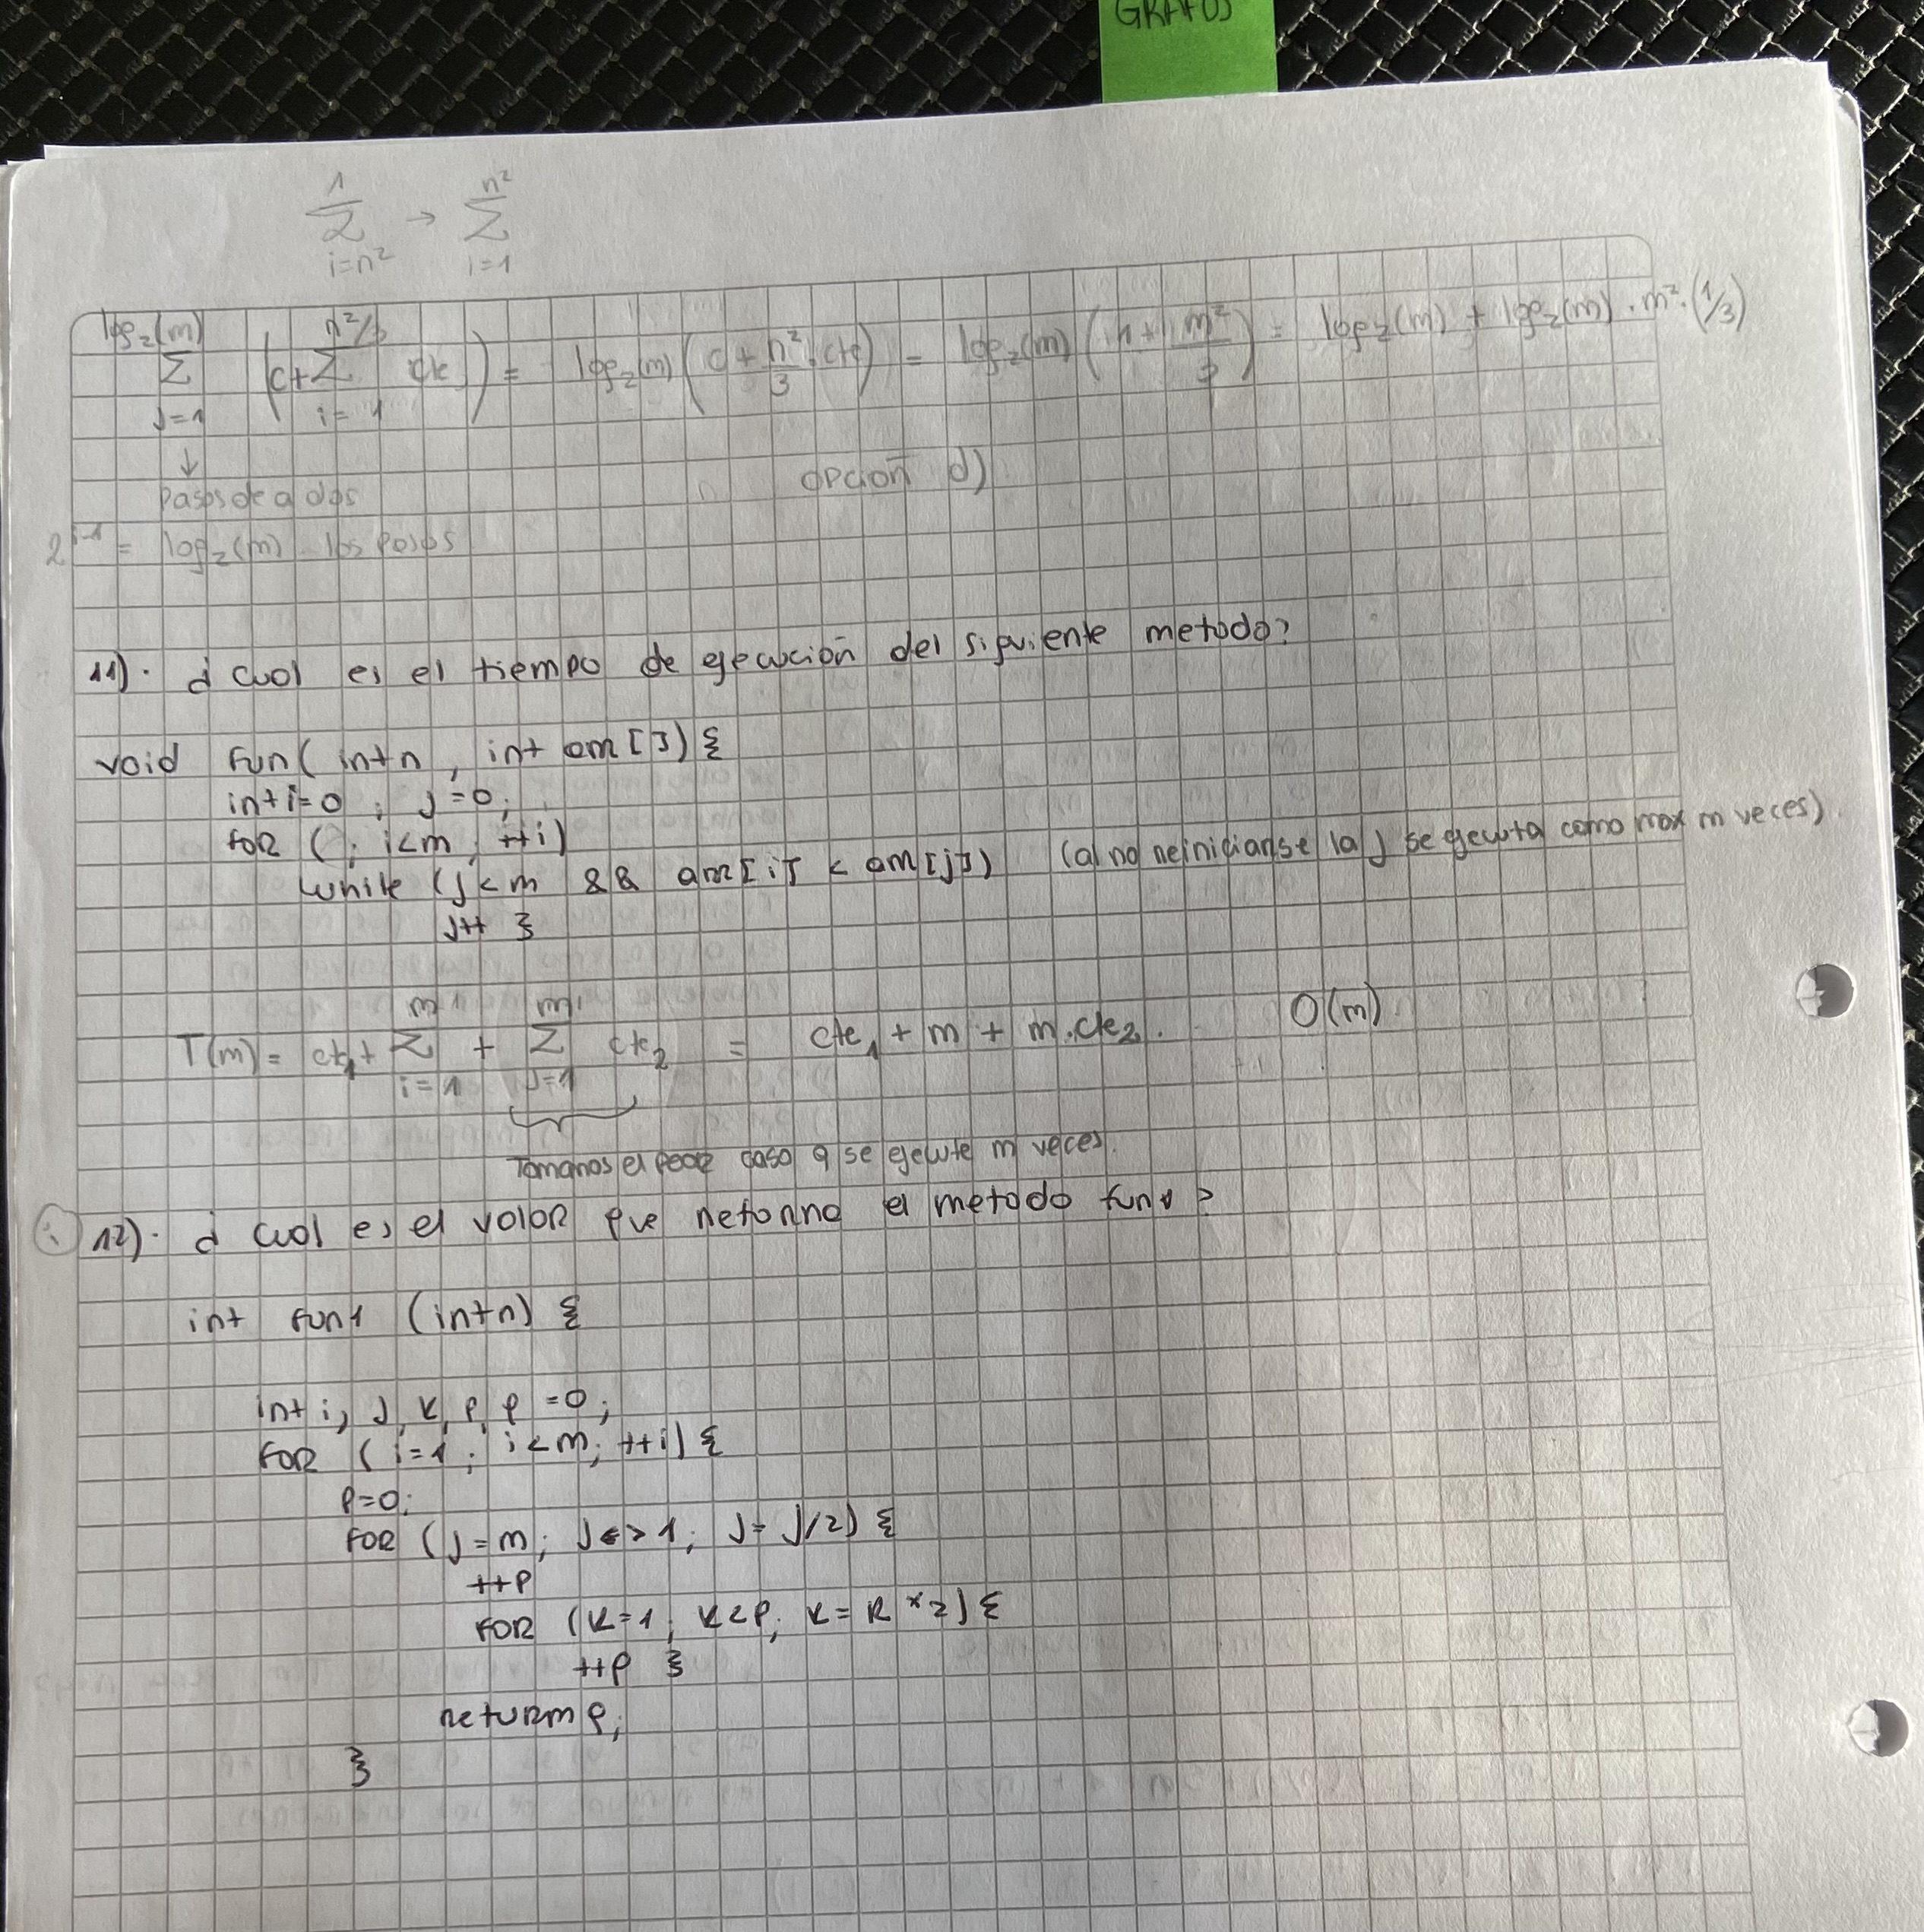 GRAFOS
1 n²
Σ → Σ
i=n² i=1
log₂(m) n²/3
Σ (c+Σ cte) = log₂(m) (c + n²/3 . cte) = log₂(m) ( + m²/3) = log₂(m) + log₂(m) . m² . (1/3)
j=1 i=1
↓
Pasos de a dos
opción d)
= log₂(m) los pasos
11). ¿ Cual es el tiempo de ejecución del siguiente metodo?
void fun( int n , int arr [ ]) {
int i=0 , j=0;
for ( ; i<m ; ++i)
while (j<m && arr[i] < arr[j]) (al no reiniciarse la j se ejecuta como max m veces)
j++ }
m m
T(m) = cte₁ + Σ + Σ cte₂ = cte₁ + m + m.cte₂. O(m)
i=1 j=1
Tomamos el peor caso q se ejecute m veces.
12). ¿ Cual es el valor que retorna el metodo fun1 ?
int fun1 (int n) {
int i, j, k, p, q =0;
for (i=1 ; i<m; ++i) {
p=0;
for (j=m; j > 1; j= j/2) {
++p
for (k=1; k<p; k= k *2) {
++q }
return q;
}